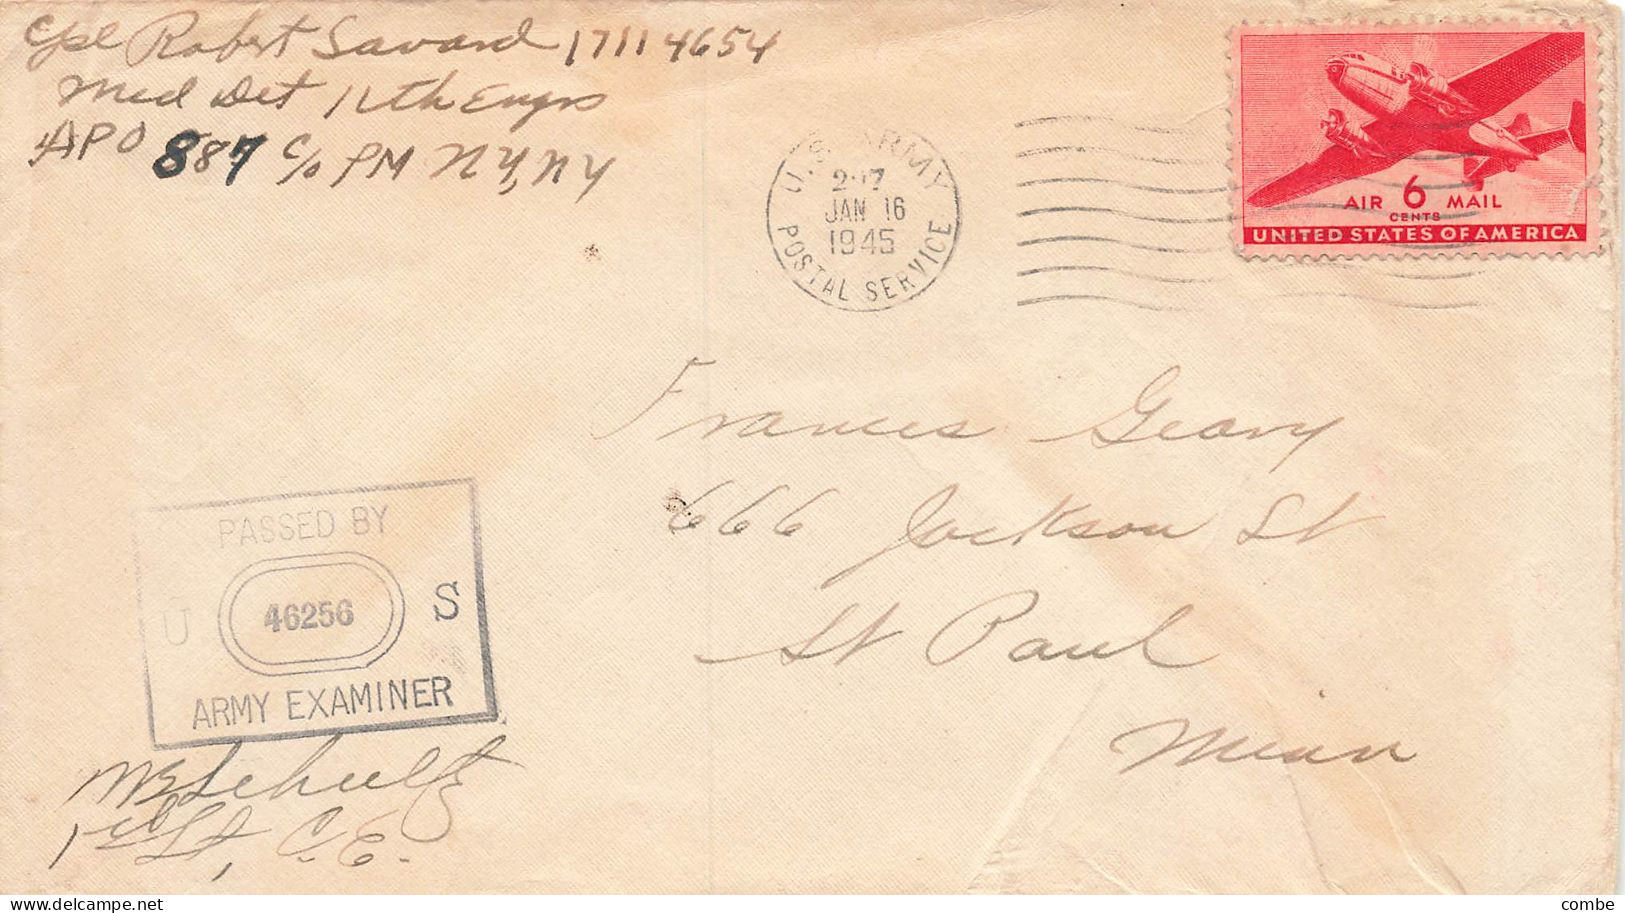 Cpl Robert Savard 17114654
Med Det 11th Engrs
APO 887 c/o PM NY, NY
U.S. ARMY
POSTAL SERVICE
JAN 16
1945
AIR 6 MAIL
CENTS
UNITED STATES OF AMERICA
Frances Geary
666 Jackson St
St Paul
Minn
PASSED BY
U 46256 S
ARMY EXAMINER
Schultz
1st Lt, C.E.
combe